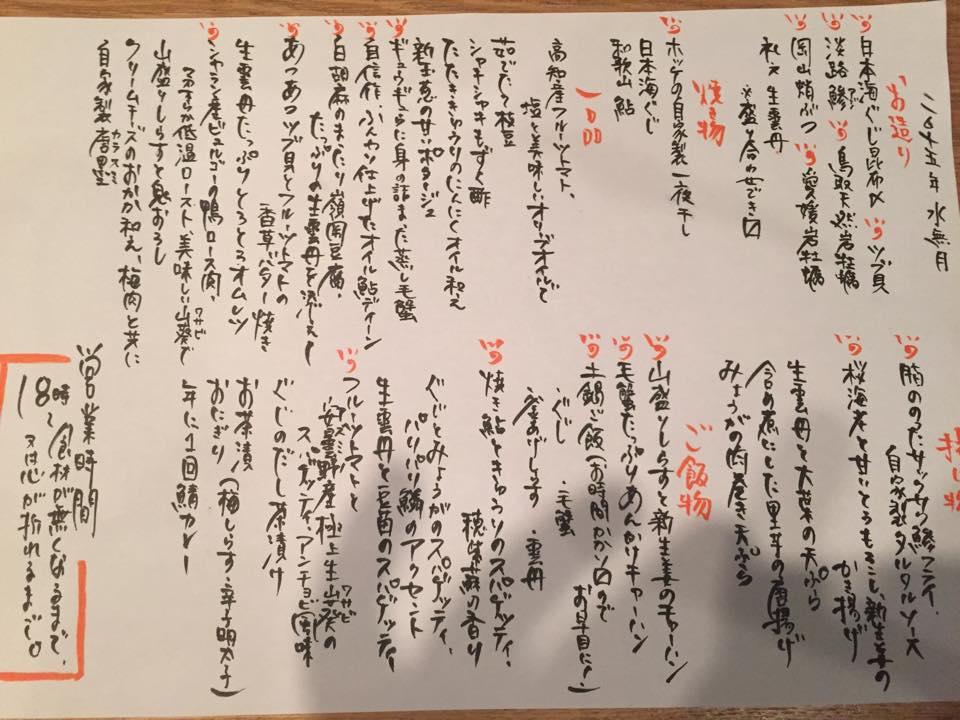 二〇十五年 水無月
お造り
日本海ぐじ昆布〆 ツブ貝
淡路鯵 鳥取天然岩牡蠣
アジ
岡山蛸ぶつ 愛媛岩牡蠣
礼文 生雲丹
※盛り合わせでき〼
焼き物
ホッケの自家製一夜干し
日本海ぐじ
和歌山 鮎
一品
高知産フルーツトマト、
塩と美味しいオリーブオイルで
茹でたて枝豆
シャキシャキもずく酢
たたききゅうりのにんにくオイル和え
新玉葱の甘いポタージュ
ギュウギュウに身の詰まった蒸し毛蟹
自信作、ふんわり仕上げたオイル鮎ディーン
白胡麻のまったり嶺岡豆腐、
たっぷりの生雲丹を添えて
あつあつツブ貝とフルーツトマトの
香草バター焼き
生雲丹たっぷりとろとろオムレツ
シャラン産ビュルゴーの鴨ロース肉、
低温ロースト、美味しい山葵で
ワサビ
山盛りしらすと鬼おろし
クリームチーズのおかか和え、梅肉と共に
自家製 唐墨
カラスミ
揚げ物
脂ののったサックサク鯵フライ、
自家製タルタルソース
桜海老と甘いとうもろこし、新生姜の
かき揚げ
生雲丹と大葉の天ぷら
含め煮にした里芋の唐揚げ
みょうがの肉巻き天ぷら
ご飯物
山盛りしらすと新生姜のチャーハン
毛蟹たっぷりあんかけチャーハン
土鍋ご飯（お時間かかり〼ので
お早目に！）
・ぐじ ・毛蟹
・釜あげしらす ・雲丹
焼き鮎ときゅうりのスパゲッティ、
穂紫蘇の香り
ぐじとみょうがのスパゲッティ、
パリパリ鱗のアクセント
生雲丹と豆苗のスパゲッティ
フルーツトマトと
安曇野産極上生山葵の
アズミノ ワサビ
スパゲッティ、アンチョビ風味
ぐじのだし茶漬け
お茶漬
おにぎり（梅しらす・辛子明太子）
年に1回鯖カレー
営業時間
18時〜食材が無くなるまで、
又は心が折れるまで。